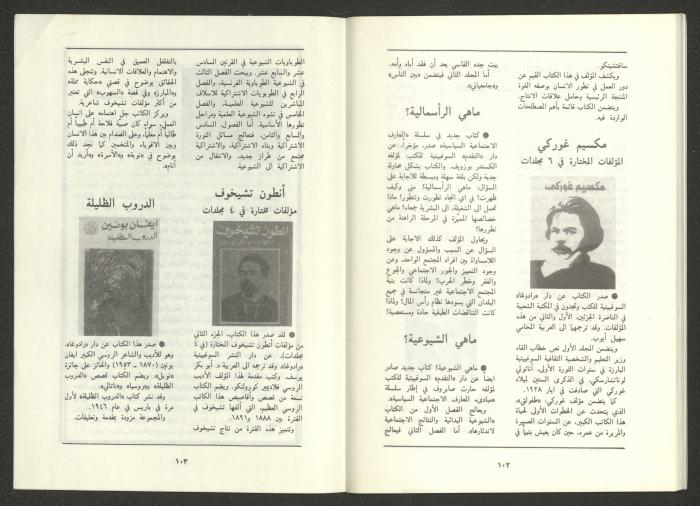 سافتشينكو.
ويكشف المؤلف في هذا الكتاب القيم عن
دور العمل في تطور الانسان بوصفه القوة
المنتجة الرئيسية وحامل علاقات الانتاج.
ويتضمن الكتاب قائمة بأهم المصطلحات
الواردة فيه.
مكسيم غوركي
المؤلفات المختارة في ٦ مجلدات
مكسيم غوركي
● صدر الكتاب عن دار «رادوغا»
السوفييتية للكتب وتجدون في المكتبة الشعبية
في الناصرة الجزئين، الأول والثاني من هذه
المؤلفات. وقد ترجمها الى العربية المحامي
سهيل أيوب.
ويتضمن المجلد الأول نص خطاب القاه
وزير التعليم والشخصية الثقافية السوفييتية
البارزة في سنوات الثورة الأولى، أناتولي
لوناتشارسكي، في الذكرى الستين لميلاد
غوركي التي صادفت في ايار ١٩٢٨.
كما يتضمن مؤلف غوركي: «طفولتي»،
الذي يتحدث عن الخطوات الأولى لحياة
هذا الكاتب الكبير، عن السنوات العسيرة
والمريرة من عمره، حين كان يعيش يتيماً في
بيت جده القاسي بعد أن فقد أباه وأمه.
أما المجلد الثاني فيتضمن «بين الناس»
و«جامعياتي».
ماهي الرأسمالية؟
● كتاب جديد في سلسلة «المعارف
الاجتماعية السياسية» صدر، مؤخراً، عن
دار «التقدم» السوفييتية للكتب لمؤلفه
الكسندر بوزويف. والكتاب يشكل محاولة
جدية ولكن بلغة سهلة ومبسطة للاجابة على
السؤال: ماهي الرأسمالية؟ متى وكيف
ظهرت؟ في أي اتجاه تطورت وتتطور؟ ماذا
تحمل الى الشغيلة، الى البشرية جمعاء؟ ماهي
خصائصها المميزة في المرحلة الراهنة من
تطورها؟
ويحاول المؤلف كذلك الاجابة على
السؤال عن السبب والمسؤول عن وجود
اللامساواة بين افراد المجتمع الواحد، وعن
وجود التمييز والجور الاجتماعي والجوع
والفقر وخطر الحرب؟ ولماذا كانت بنية
المجتمع الاجتماعية غير متجانسة في جميع
البلدان التي يسودها نظام رأس المال؟ ولماذا
كانت التناقضات الطبقية حادة ومستعصية؟
ماهي الشيوعية؟
● ماهي الشيوعية؟ كتاب جديد صادر
ايضا عن دار «التقدم» السوفييتية للكتب
لمؤلفه حارث صابروف في إطار سلسلة
«مبادىء المعارف الاجتماعية السياسية».
ويعالج الفصل الأول من الكتاب
«الشيوعية البدائية والنتائج الاجتماعية
لاندثارها». أما الفصل الثاني فيعالج
١٠٢
الطوباويات الشيوعية في القرنين السادس
عشر والسابع عشر. ويبحث الفصل الثالث
في الطوباوية الشيوعية الفرنسية. والفصل
الرابع في الطوبويات الاشتراكية للاسلاف
المباشرين للشيوعية العلمية. والفصل
الخامس في نشوء الشيوعية العلمية ومراحل
تطورها الأساسية. أما الفصول، السادس
والسابع والثامن، فتعالج مسائل الثورة
الاشتراكية وبناء الاشتراكية، والاشتراكية
مجتمع من طراز جديد، والانتقال من
الاشتراكية الى الشيوعية.
أنطون تشيخوف
مؤلفات مختارة في ٤ مجلدات
انطون تشيخوف
● لقد صدر هذا الكتاب، الجزء الثاني
من مؤلفات أنطون تشيخوف المختارة (في ٤
مجلدات)، عن دار النشر السوفييتية
«رادوغا». وقد ترجمه الى العربية د. أبو بكر
يوسف. وكتب مقدمة لهذا المؤلف الأديب
الروسي فلاديمير كورولنكو. ويضم الكتاب
تسعة من قصص وأقاصيص هذا الكاتب
الروسي العظيم، التي ألفها تشيخوف في
الفترة بين ١٨٨٨ و١٨٩١.
وتتميز هذه الفترة من نتاج تشيخوف
بالتغلغل العميق في النفس البشرية
والاهتمام والعلاقات الانسانية. وتتجلى هذه
الحقائق بوضوح في قصتي «حكاية مملة»
و«المبارزة» وفي قصة «السهوب» التي تعتبر
من أكثر مؤلفات تشيخوف شاعرية.
ويركز الكاتب جل اهتمامه على انسان
العمل، سواء كان صبية فلاحة أم طبيباً أم
طالباً أم معلماً، وعلى الصدام بين هذا الانسان
وبين الاقوياء والمتخمين كما نجد ذلك
بوضوح في «نوبة» و«الأميرة» و«أريد أن
أنام».
الدروب الظليلة
إيفان بونين
الدروب الظليلة
● صدر هذا الكتاب عن دار «رادوغا»،
وهو للأديب والشاعر الروسي الكبير ايفان
بونين (١٨٧٠ ـ ١٩٥٣) والحائز على جائزة
«نوبل»، ويضم الكتاب قصص «الدروب
الظليلة» و«روسيا» و«ناتالي».
وقد نشر كتاب «الدروب الظليلة» لأول
مرة في باريس في عام ١٩٤٦.
والمجموعة مزودة بمقدمة وتعليقات.
١٠٣